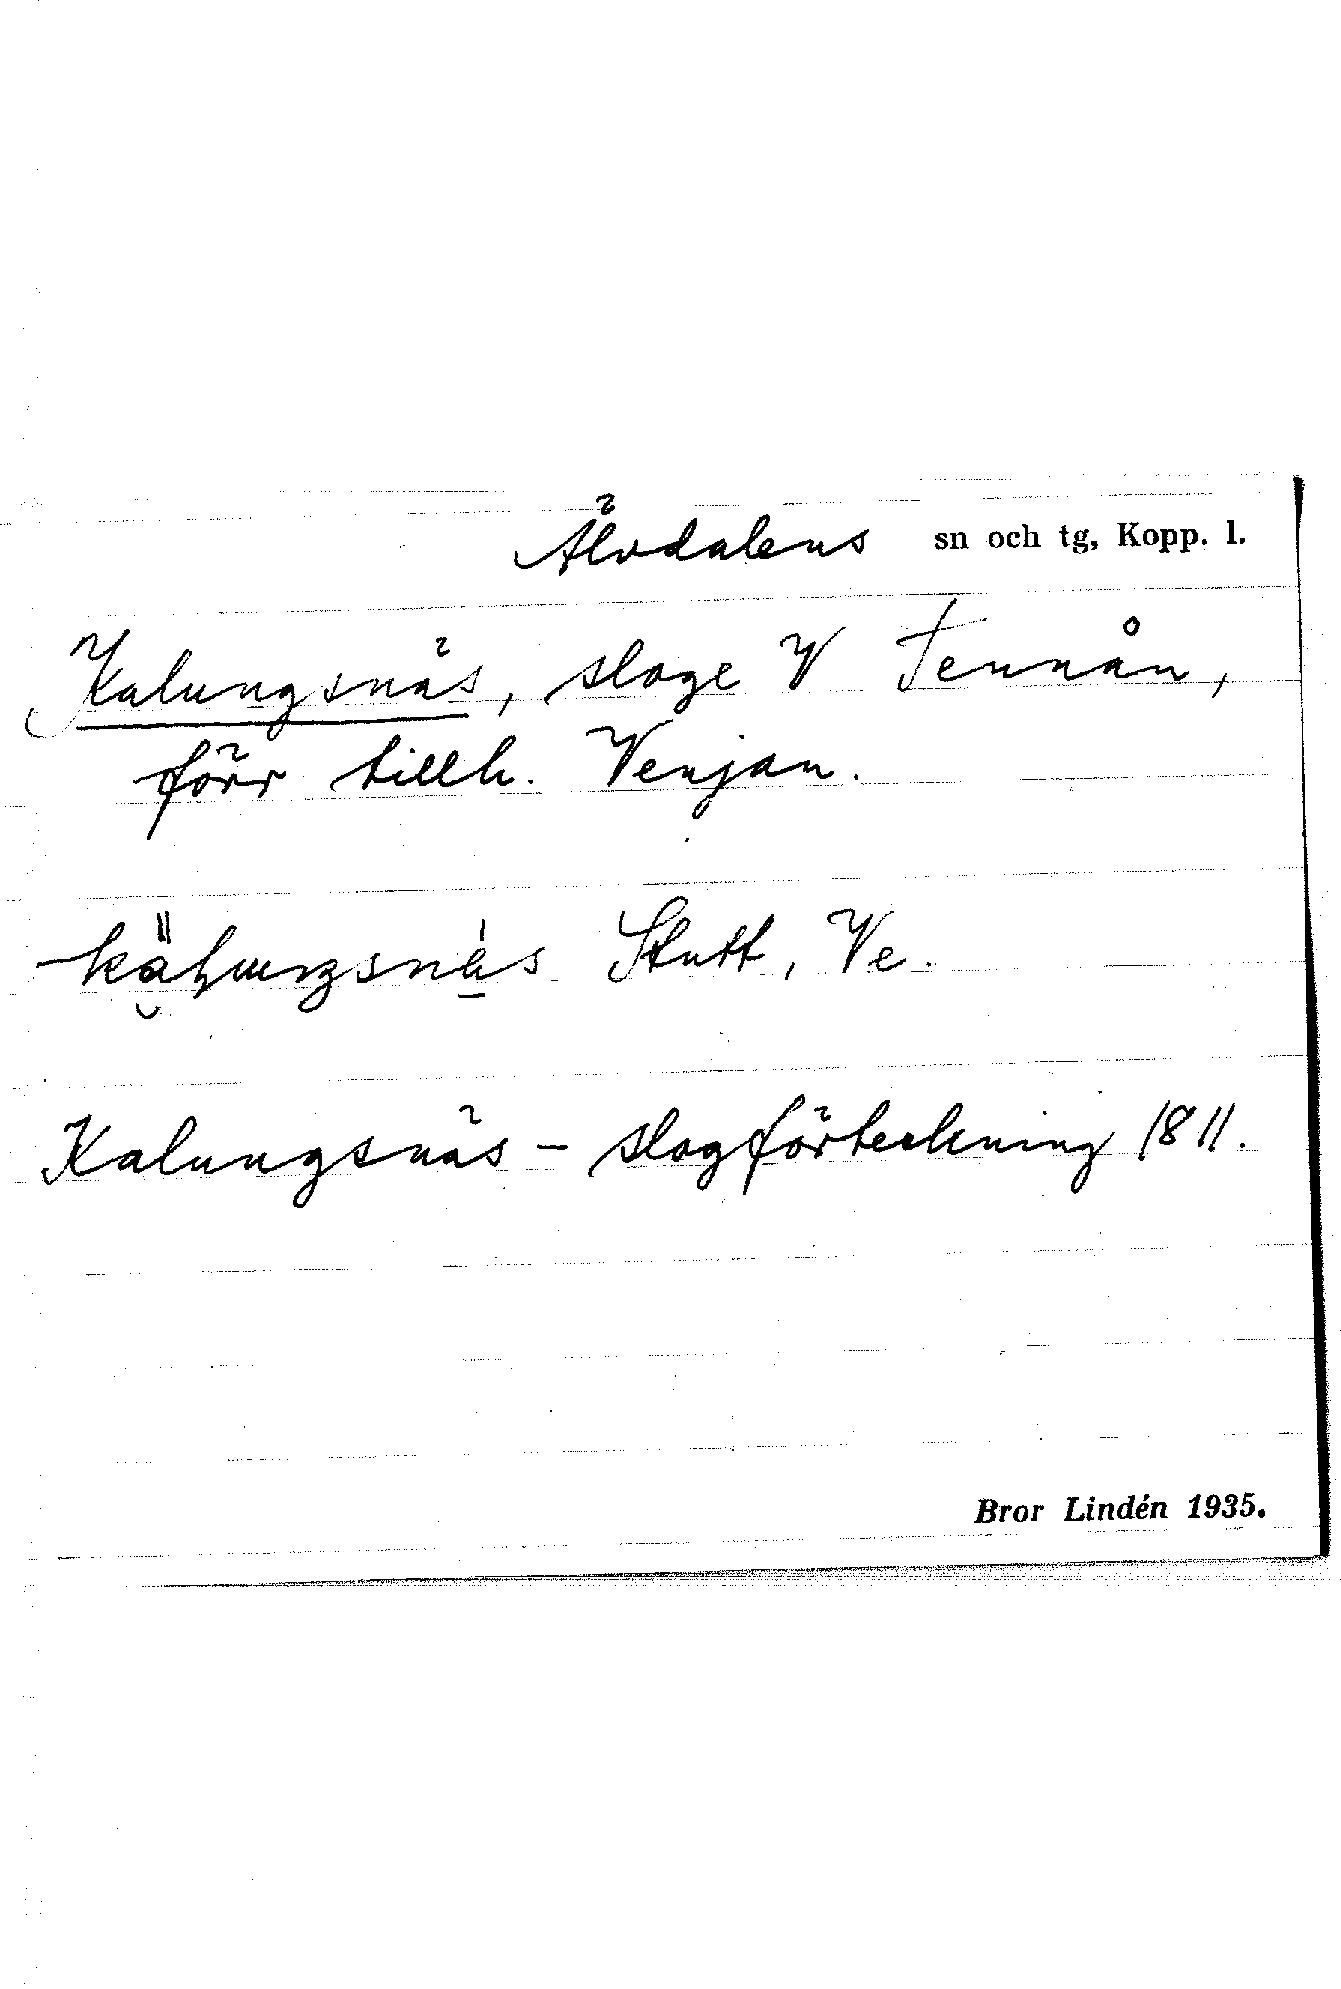 Älvdalens sn och tg, Kopp. l.
Kalungsnäs, sloge V Tennån,
förr tillh. Venjan.
Stutt, Ve.
Kalungsnäs - slogförteckning 1811.
Bror Lindén 1935.